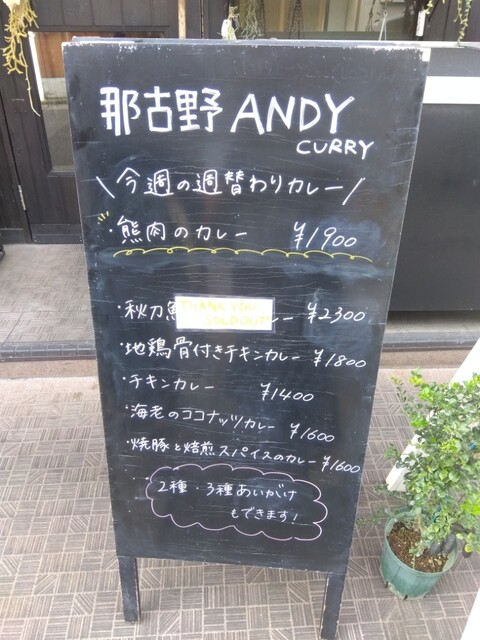 那古野 ANDY
CURRY
\今週の週替わりカレー/
・熊肉のカレー ¥1900
・秋刀魚 THANK YOU SOLD OUT レー ¥2300
・地鶏骨付きチキンカレー ¥1800
・チキンカレー ¥1400
・海老のココナッツカレー ¥1600
・焼豚と焙煎スパイスのカレー ¥1600
2種・3種あいがけ
もできます!